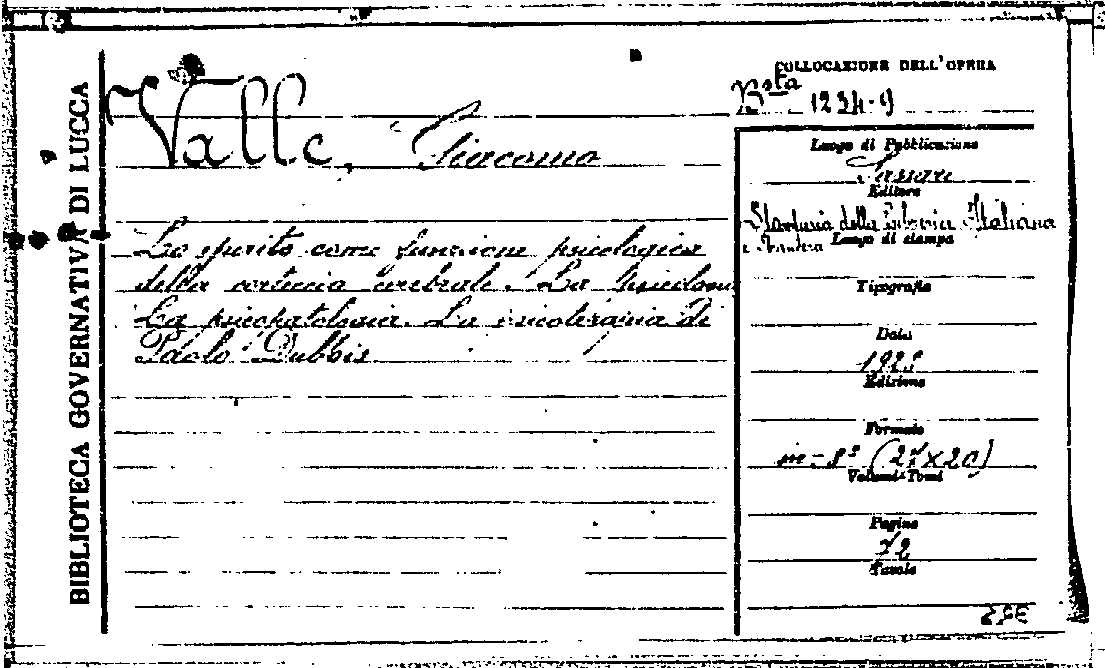 BIBLIOTECA GOVERNATIVA DI LUCCA
COLLOCAZIONE DELL'OPERA
Bsta 1234-9
Valle, Giacomo
Lo spirito come funzione psicologica
della corteccia cerebrale. La
La psicopatologia. La psicoterapia di
Paolo Dubbis
Luogo di Pubblicazione
Sassari
Editore
della Libreria Italiana
e
Luogo di stampa
Tipografia
Data
Edizione
Formato
in-8° (27x20)
Volumi-Tomi
Pagine
72
Tavole